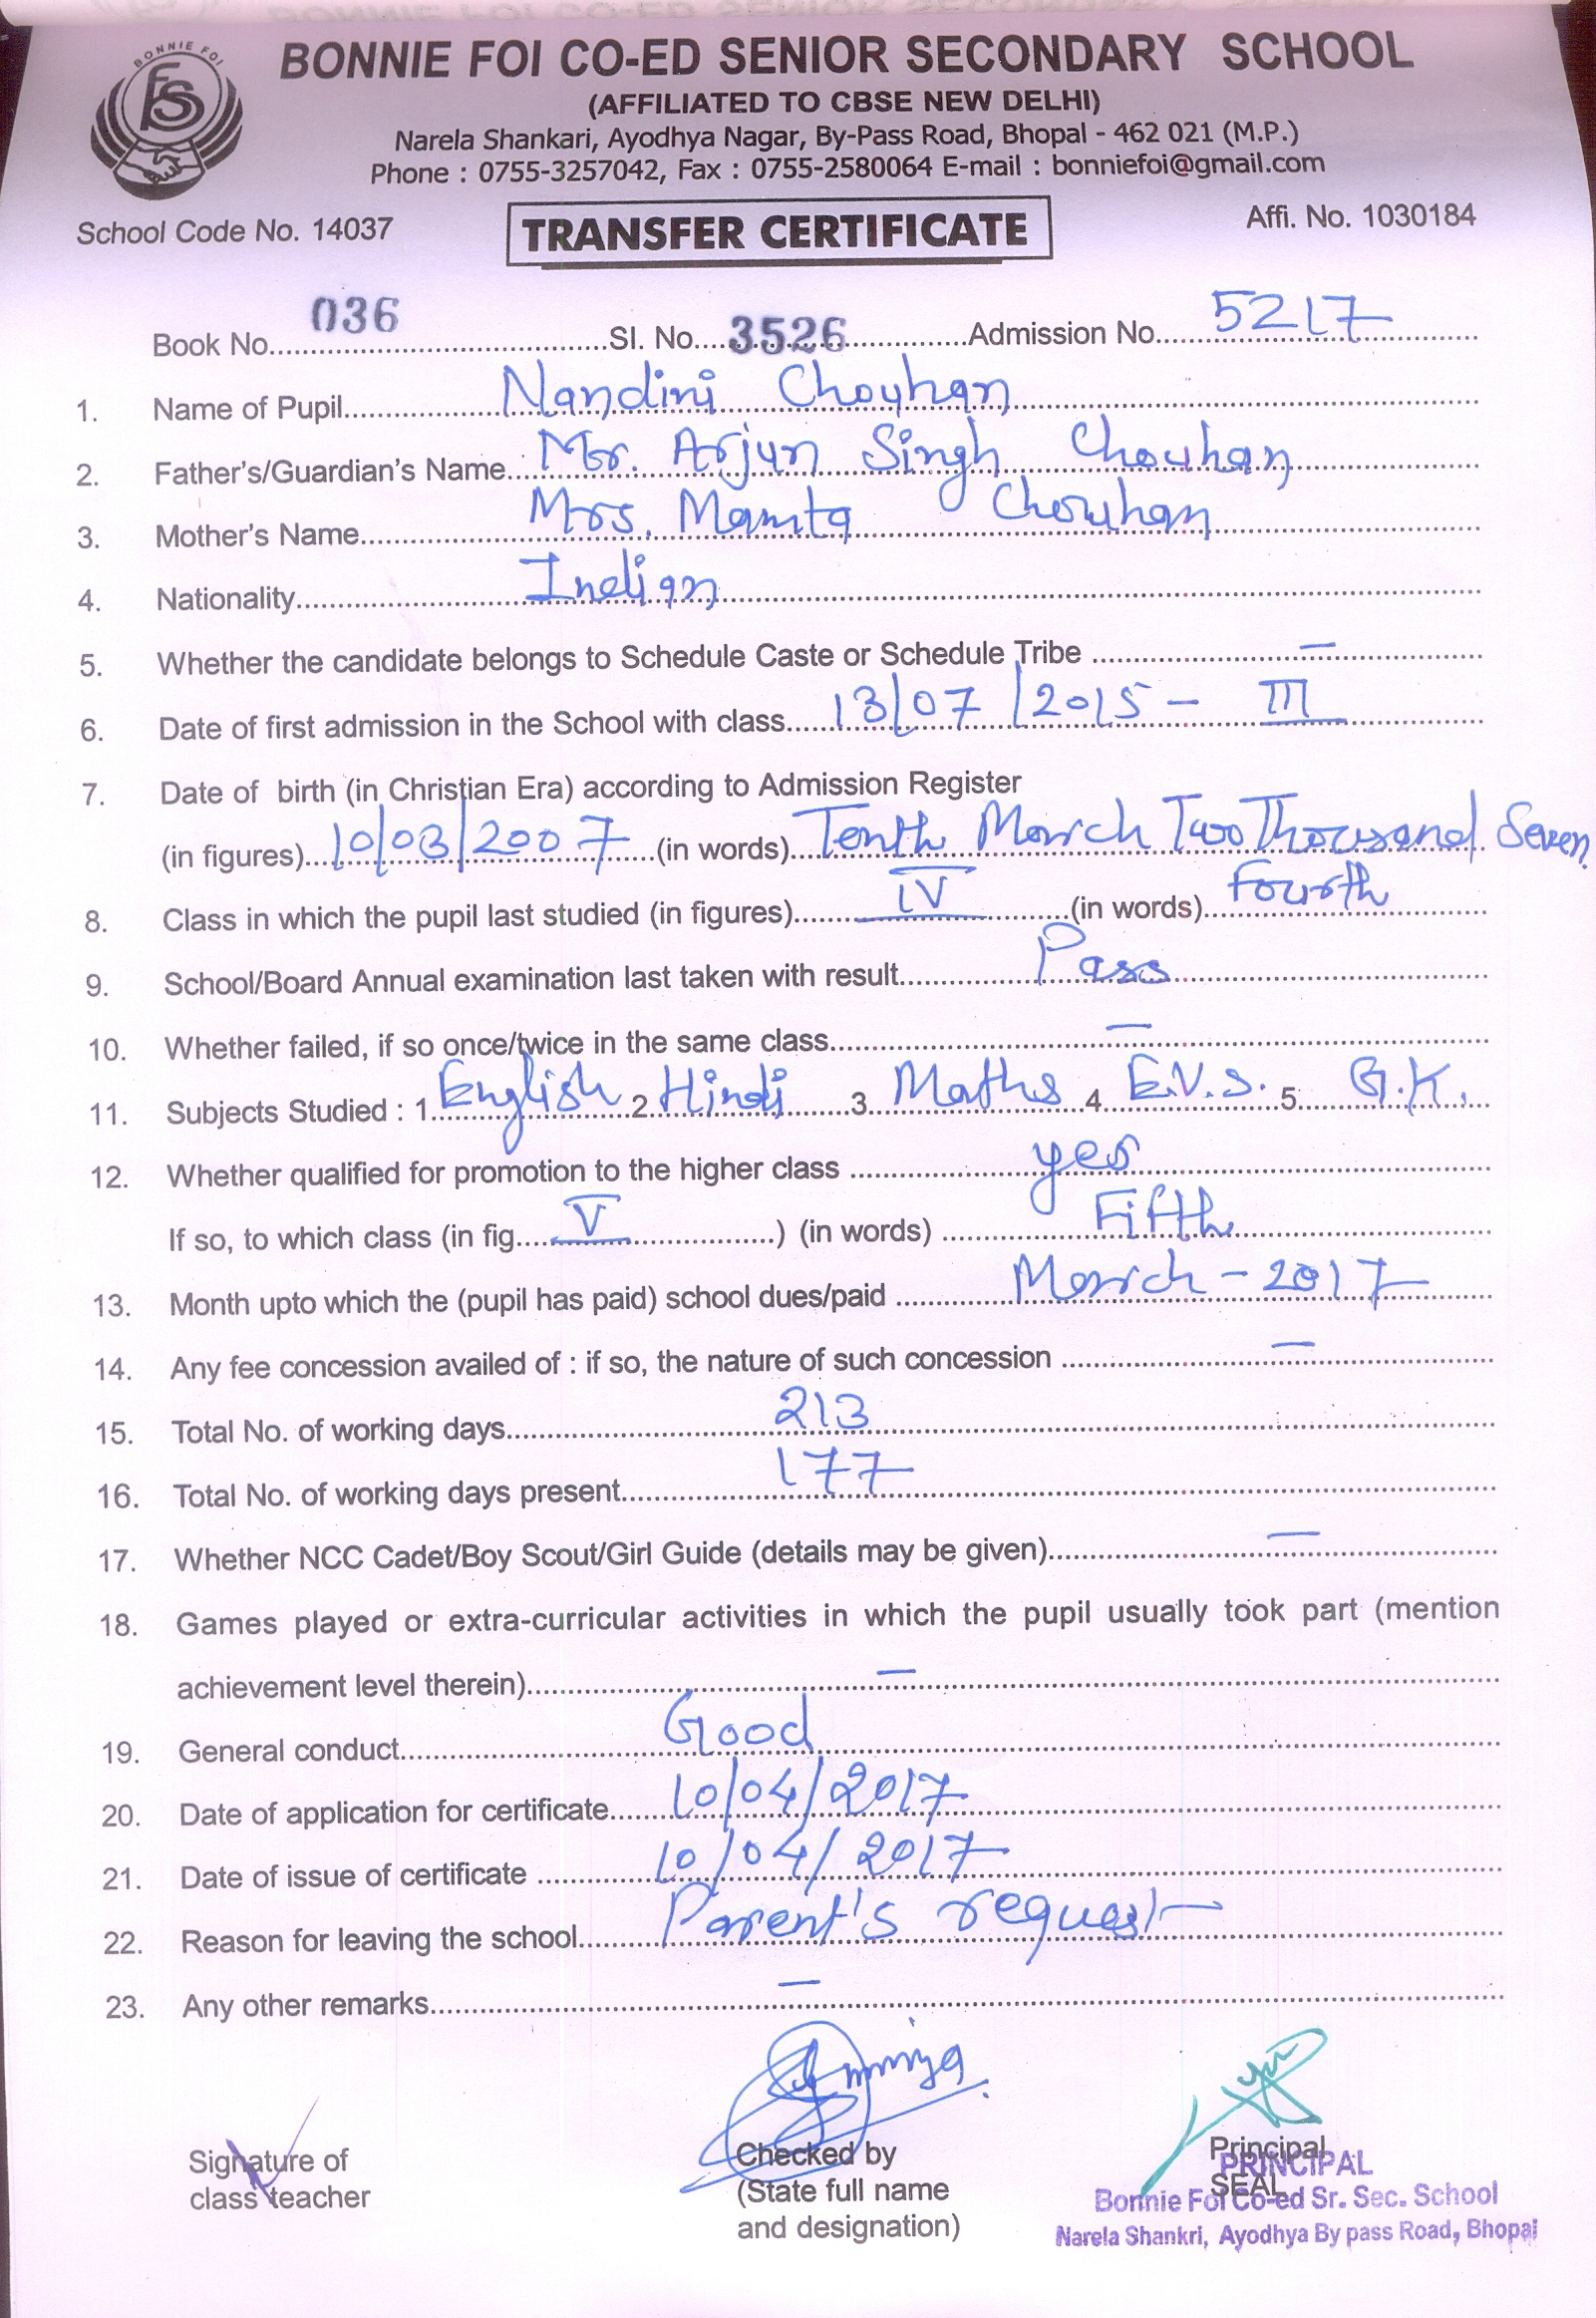 BONNIE FOI
FS
BONNIE FOI CO-ED SENIOR SECONDARY SCHOOL
(AFFILIATED TO CBSE NEW DELHI)
Narela Shankari, Ayodhya Nagar, By-Pass Road, Bhopal - 462 021 (M.P.)
Phone : 0755-3257042, Fax : 0755-2580064 E-mail : bonniefoi@gmail.com
School Code No. 14037 TRANSFER CERTIFICATE Affi. No. 1030184
Book No. 036 Sl. No. 3526 Admission No. 5217
1. Name of Pupil Nandini Chouhan
2. Father's/Guardian's Name Mr. Arjun Singh Chouhan
3. Mother's Name Mrs. Mamta Chouhan
4. Nationality Indian
5. Whether the candidate belongs to Schedule Caste or Schedule Tribe —
6. Date of first admission in the School with class 13/07/2015 - III
7. Date of birth (in Christian Era) according to Admission Register
(in figures) 10/03/2007 (in words) Tenth March Two Thousand Seven
8. Class in which the pupil last studied (in figures) IV (in words) Fourth
9. School/Board Annual examination last taken with result Pass
10. Whether failed, if so once/twice in the same class —
11. Subjects Studied : 1 English 2 Hindi 3 Maths 4 E.V.S. 5 G.K.
12. Whether qualified for promotion to the higher class yes
If so, to which class (in fig. V ) (in words) Fifth
13. Month upto which the (pupil has paid) school dues/paid March - 2017
14. Any fee concession availed of : if so, the nature of such concession —
15. Total No. of working days 213
16. Total No. of working days present 177
17. Whether NCC Cadet/Boy Scout/Girl Guide (details may be given) —
18. Games played or extra-curricular activities in which the pupil usually took part (mention
achievement level therein) —
19. General conduct Good
20. Date of application for certificate 10/04/2017
21. Date of issue of certificate 10/04/2017
22. Reason for leaving the school Parent's request
23. Any other remarks —
Signature of
class teacher
Checked by
(State full name
and designation)
Principal
SEAL
PRINCIPAL
Bonnie Foi Co-ed Sr. Sec. School
Narela Shankri, Ayodhya By pass Road, Bhopal